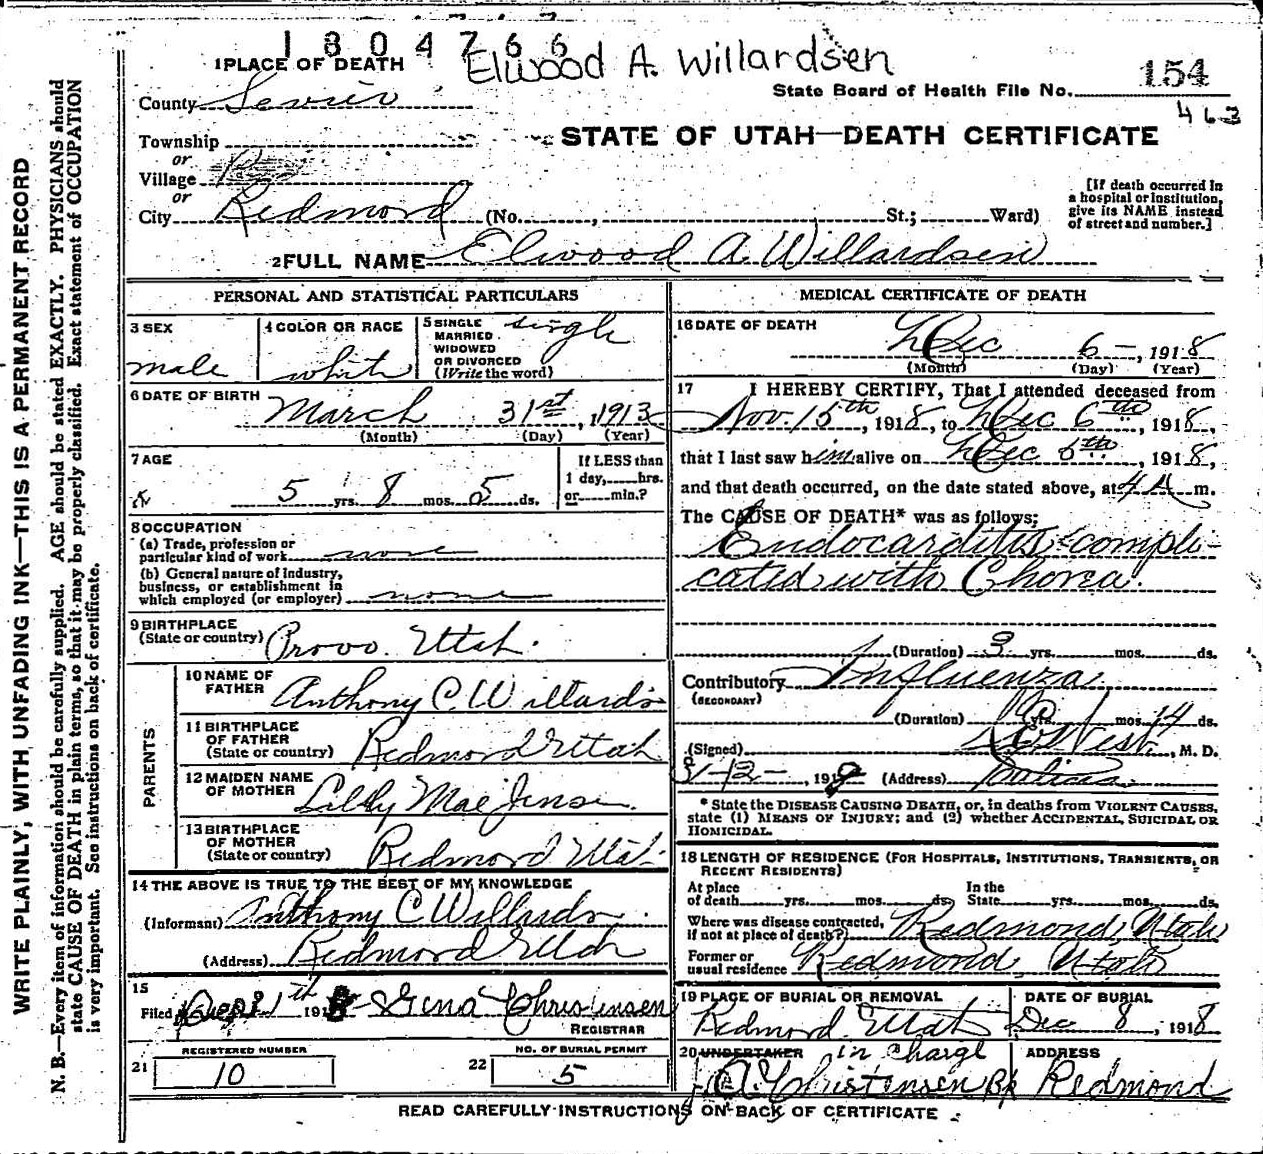 1804766
Elwood A. Willardsen
1 PLACE OF DEATH
State Board of Health File No. 154
463
County Sevier
STATE OF UTAH—DEATH CERTIFICATE
Township
or
Village
or
City Redmond (No. , St.; Ward)
[If death occurred in
a hospital or institution,
give its NAME instead
of street and number.]
2 FULL NAME Elwood A. Willardsen
PERSONAL AND STATISTICAL PARTICULARS
3 SEX
male
4 COLOR OR RACE
white
5 SINGLE
MARRIED
WIDOWED
OR DIVORCED
(Write the word)
single
6 DATE OF BIRTH
March 31st, 1913
(Month) (Day) (Year)
7 AGE
5 yrs. 8 mos. 5 ds.
If LESS than
1 day, hrs.
or min.?
8 OCCUPATION
(a) Trade, profession or
particular kind of work none
(b) General nature of industry,
business, or establishment in
which employed (or employer) none
9 BIRTHPLACE
(State or country) Provo. Utah.
PARENTS
10 NAME OF
FATHER Anthony C. Willards
11 BIRTHPLACE
OF FATHER
(State or country) Redmond Utah
12 MAIDEN NAME
OF MOTHER Lilly Mae Jensen
13 BIRTHPLACE
OF MOTHER
(State or country) Redmond Utah
14 THE ABOVE IS TRUE TO THE BEST OF MY KNOWLEDGE
(Informant) Anthony C Willards
(Address) Redmond Utah
15
Filed 191 Gena Christensen
REGISTRAR
REGISTERED NUMBER
21 10
NO. OF BURIAL PERMIT
22 5
MEDICAL CERTIFICATE OF DEATH
16 DATE OF DEATH
Dec 6 —, 1918
(Month) (Day) (Year)
17 I HEREBY CERTIFY, That I attended deceased from
Nov. 15th, 1918, to Dec 6th, 1918,
that I last saw him alive on Dec 5th, 1918,
and that death occurred, on the date stated above, at 4 A m.
The CAUSE OF DEATH* was as follows:
Endocarditis compli-
cated with Chorea.
(Duration) 3 yrs. mos. ds.
Contributory Influenza
(SECONDARY)
(Duration) yrs. mos. 14 ds.
(Signed) West, M. D.
191 (Address) Salina
* State the DISEASE CAUSING DEATH, or, in deaths from VIOLENT CAUSES,
state (1) MEANS OF INJURY; and (2) whether ACCIDENTAL, SUICIDAL OR
HOMICIDAL.
18 LENGTH OF RESIDENCE (FOR HOSPITALS, INSTITUTIONS, TRANSIENTS, OR
RECENT RESIDENTS)
At place
of death yrs. mos. ds.
In the
State yrs. mos. ds.
Where was disease contracted,
if not at place of death? Redmond, Utah
Former or
usual residence Redmond, Utah
19 PLACE OF BURIAL OR REMOVAL
Redmond Utah
DATE OF BURIAL
Dec 8, 1918
20 UNDERTAKER in charge
A Christensen Bp
ADDRESS
Redmond
READ CAREFULLY INSTRUCTIONS ON BACK OF CERTIFICATE
WRITE PLAINLY, WITH UNFADING INK—THIS IS A PERMANENT RECORD
N. B.—Every item of information should be carefully supplied. AGE should be stated EXACTLY. PHYSICIANS should
state CAUSE OF DEATH in plain terms, so that it may be properly classified. Exact statement of OCCUPATION
is very important. See instructions on back of certificate.